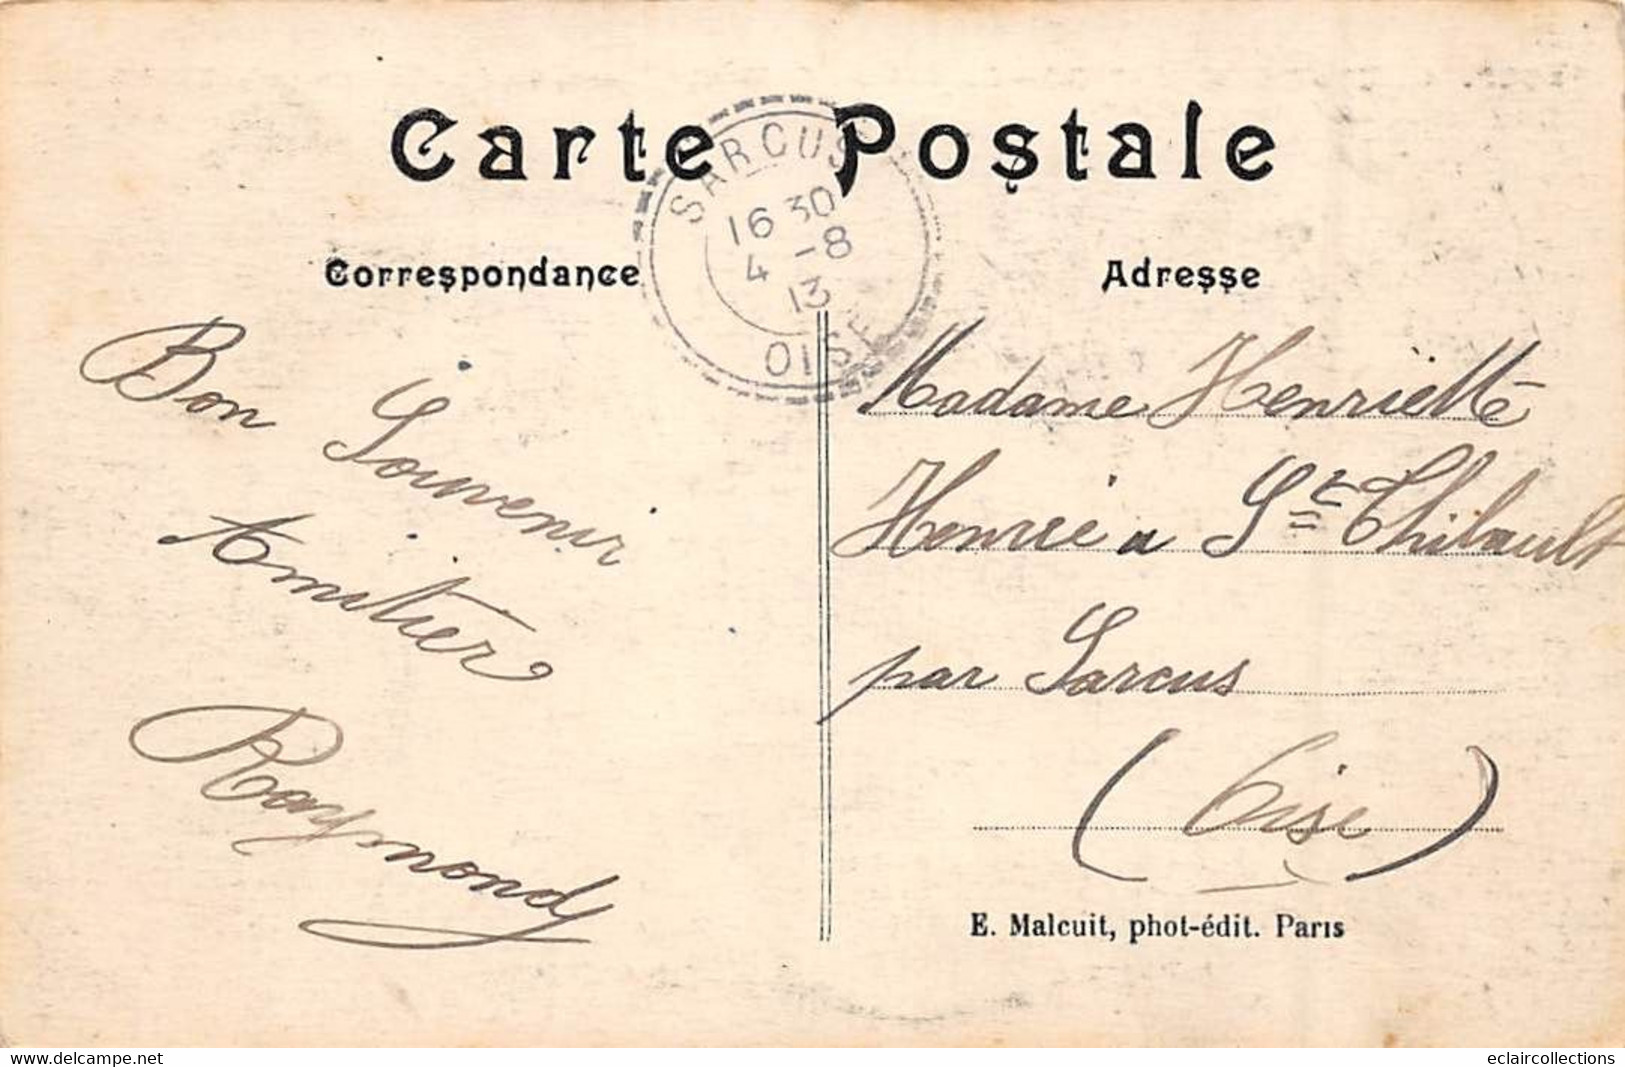 Carte Postale
SARCUS
16 30
4 -8
13
OISE
Correspondance
Adresse
Bon
Souvenir
Amitier
Raymond
Madame Henriette
Henrie a St Thibault
par Sarcus
(Oise)
E. Malcuit, phot-édit. Paris
www.delcampe.net
eclaircollections